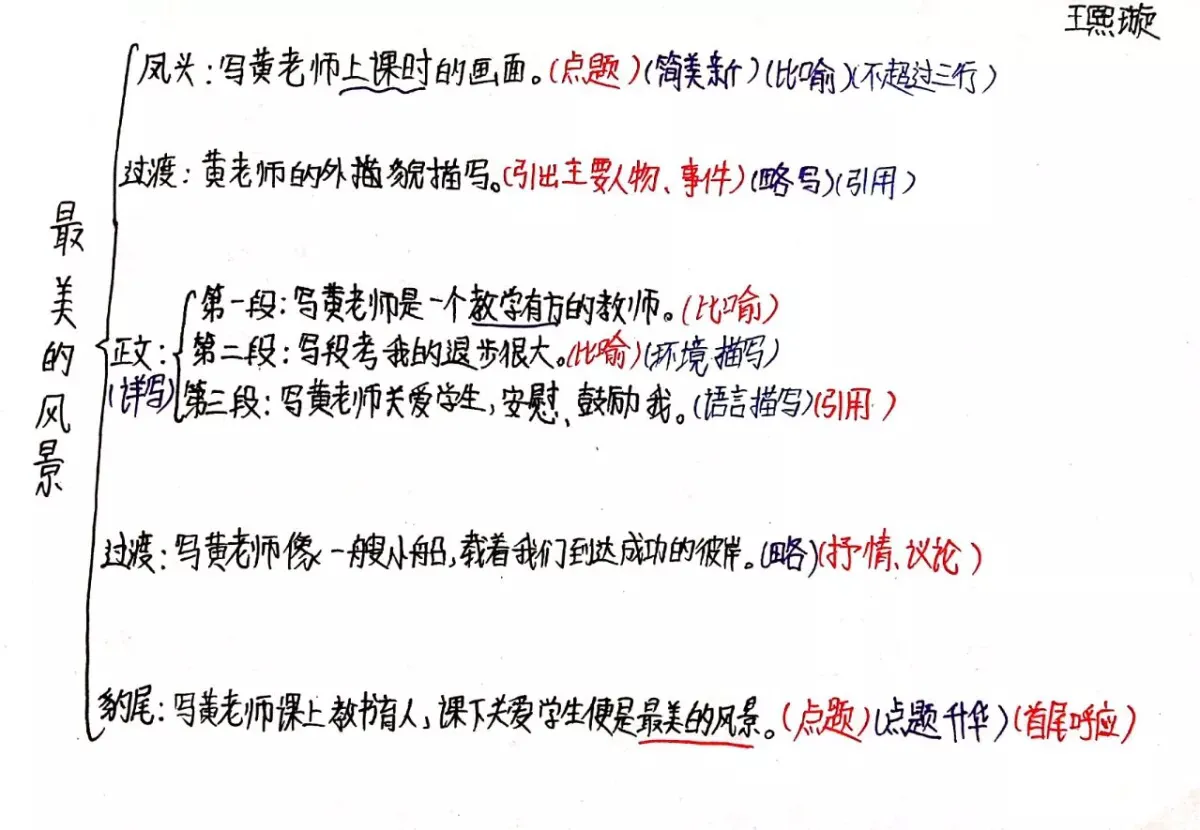 王熙璇
最美的风景
凤头：写黄老师上课时的画面。（点题）（简美新）（比喻）（不超过三行）
过渡：黄老师的外描貌描写。（引出主要人物、事件）（略写）（引用）
正文：
（详写）
第一段：写黄老师是一个教学有方的教师。（比喻）
第二段：写段考我的退步很大。（比喻）（环境描写）
第三段：写黄老师关爱学生，安慰、鼓励我。（语言描写）（引用）
过渡：写黄老师像一艘小船，载着我们到达成功的彼岸。（略）（抒情、议论）
豹尾：写黄老师课上教书育人，课下关爱学生便是最美的风景。（点题）（点题升华）（首尾呼应）